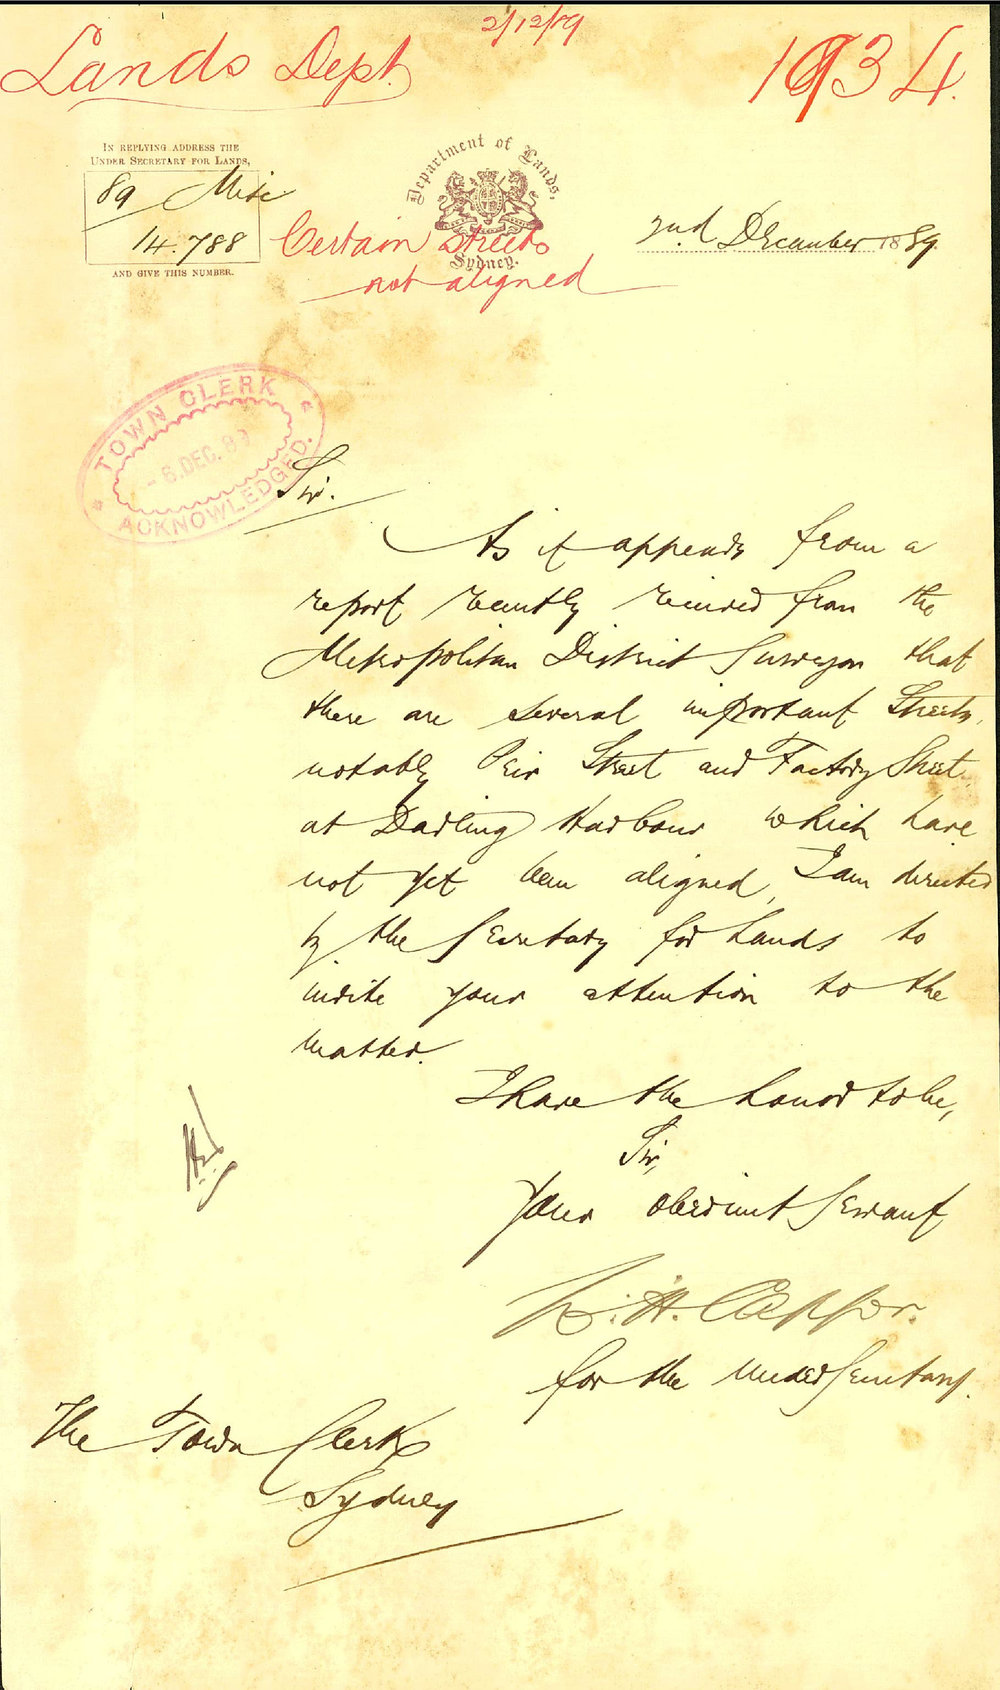 2/12/89
Lands Dept.
1934.
IN REPLYING ADDRESS THE
UNDER SECRETARY FOR LANDS,
89 Misc
14.788
AND GIVE THIS NUMBER.
Department of Lands,
Sydney.
Certain Streets
not aligned
2nd December 1889
TOWN CLERK
6. DEC. 89
ACKNOWLEDGED.
Sir.
As it appears from a
report recently received from the
Metropolitan District Surveyor that
there are several important Streets,
notably Peir Street and Factory Street
at Darling Harbour which have
not yet been aligned, I am directed
by the Secretary for Lands to
invite your attention to the
matter.
I have the honor to be,
Sir,
Your obedient Servant
W. H. Capper.
for the Under Secretary.
The Town Clerk
Sydney